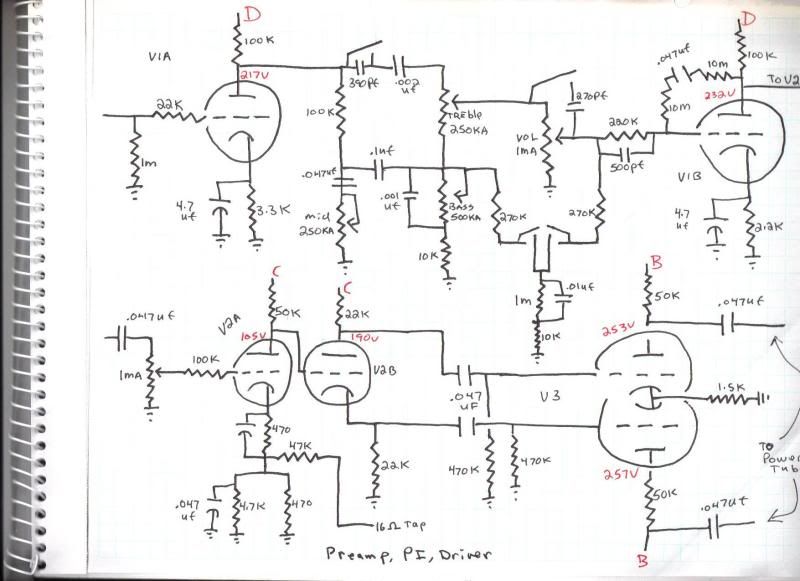 D
V1A
100K
217V
22K
1m
4.7
uf
3.3K
390pf
.002
uf
100K
TREBLE
250KA
.047uf
.1uf
mid
250KA
.001
uf
BASS
500KA
10K
270K
270pf
VOL
1MA
220K
500pf
270K
1m
.01uf
10K
D
.047uf
10m
100K
TO V2
232V
10m
V1B
4.7
uf
2.2K
C
.047uf
V2A
50K
105V
100K
1MA
470
47K
.047
uf
4.7K
470
16Ω Tap
C
22K
190V
V2B
22K
.047
UF
470K
470K
B
50K
.047uf
253V
V3
1.5K
257V
TO
Power
Tub
50K
.047uf
B
Preamp, PI, Driver